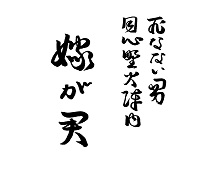 死なない男
同心野火陣内
嫁が君